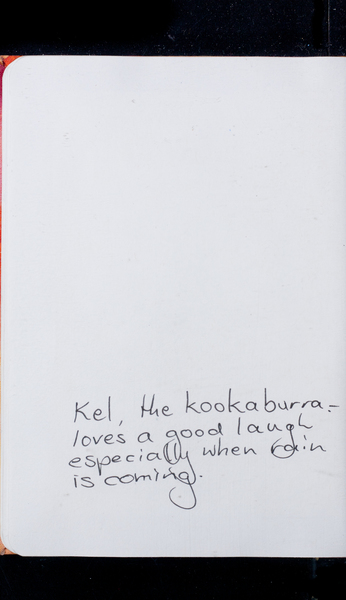 Kel, the kookaburra:-
loves a good laugh
especially when rain
is coming.